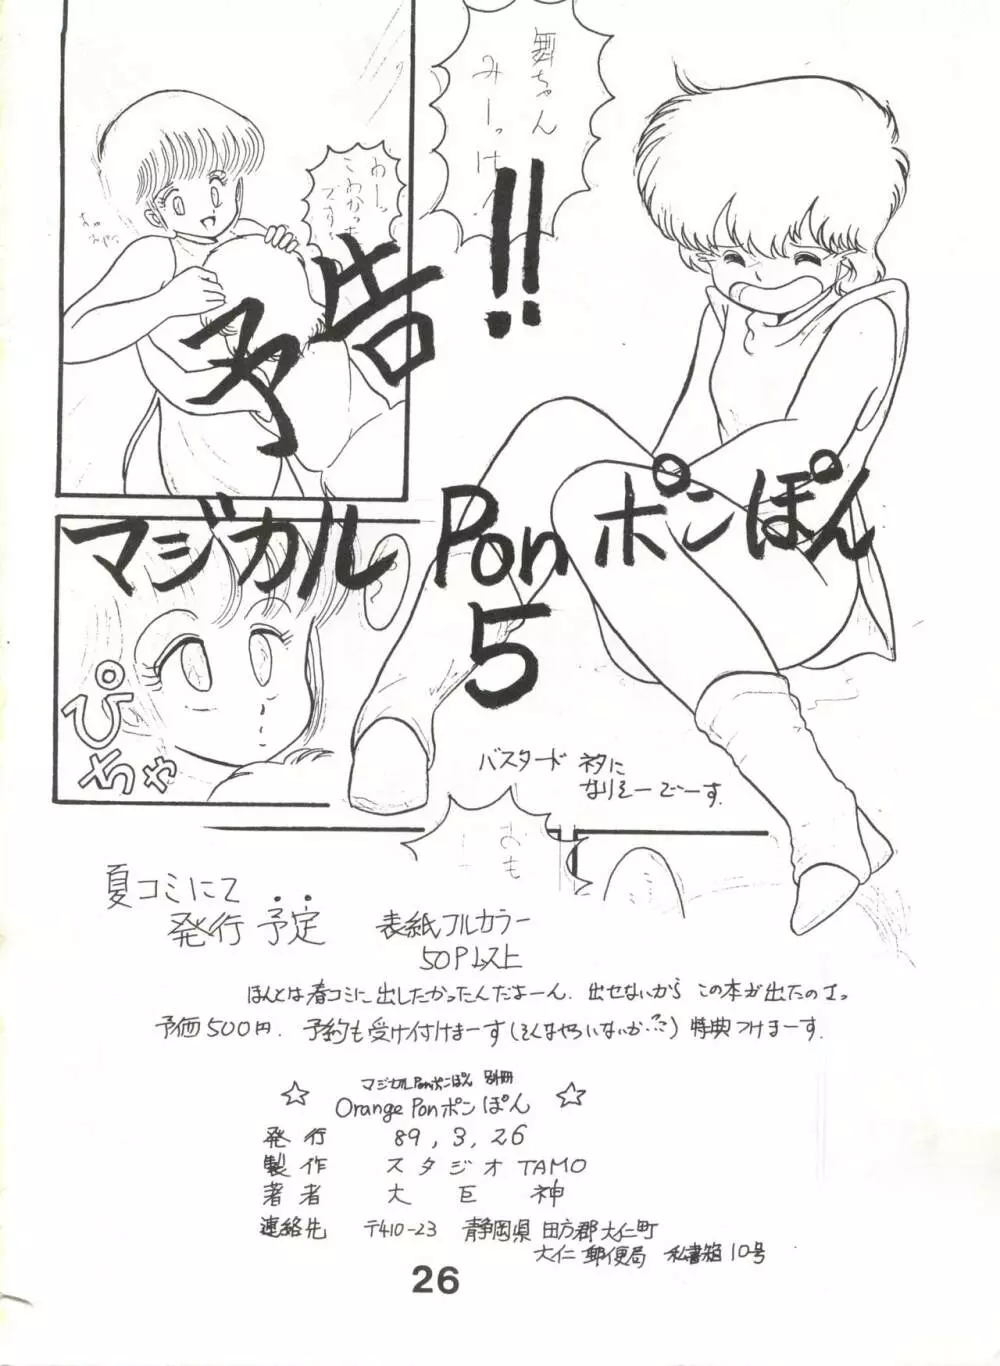 舞ちゃん
みーっけ
予告!!
マジカル Pon ポンぽん
5
ぴちゃ
バスタード ネタに
なりそーでーす。
おも
夏コミにて
発行 予定
表紙フルカラー
50P以上
ほんとは春コミに出したかったんだよーん。出せないから この本が出たのさっ
予価500円. 予約も受け付けまーす(そんなやついないか…?) 特典つけまーす.
マジカルPonポンぽん 別冊
☆ Orange Ponポンぽん ☆
発行 89,3,26
製作 スタジオTAMO
著者 大巨神
連絡先 〒410-23 静岡県 田方郡大仁町
大仁郵便局 私書箱10号
26